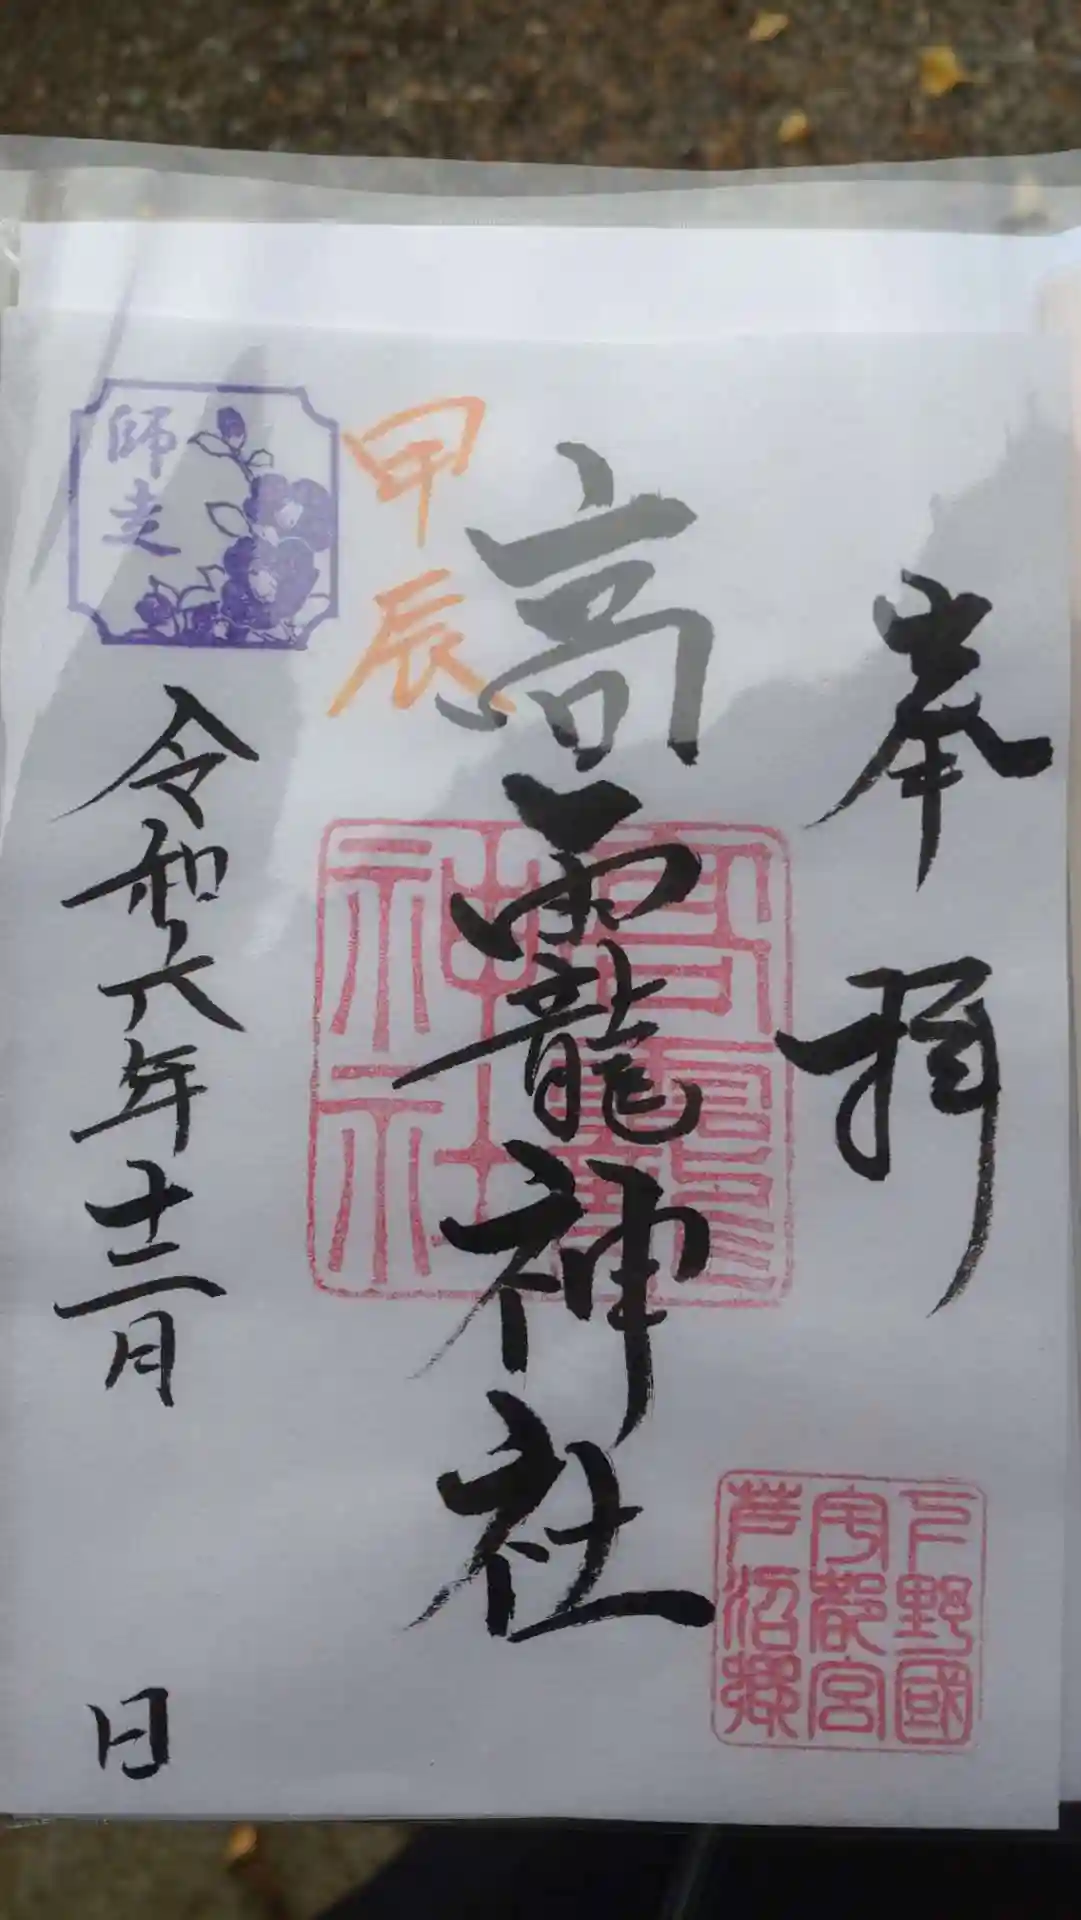 奉拝
高龗神社
甲辰
師走
令和六年十二月 日
高龗
神社
下野國
宇都宮
芦沼郷